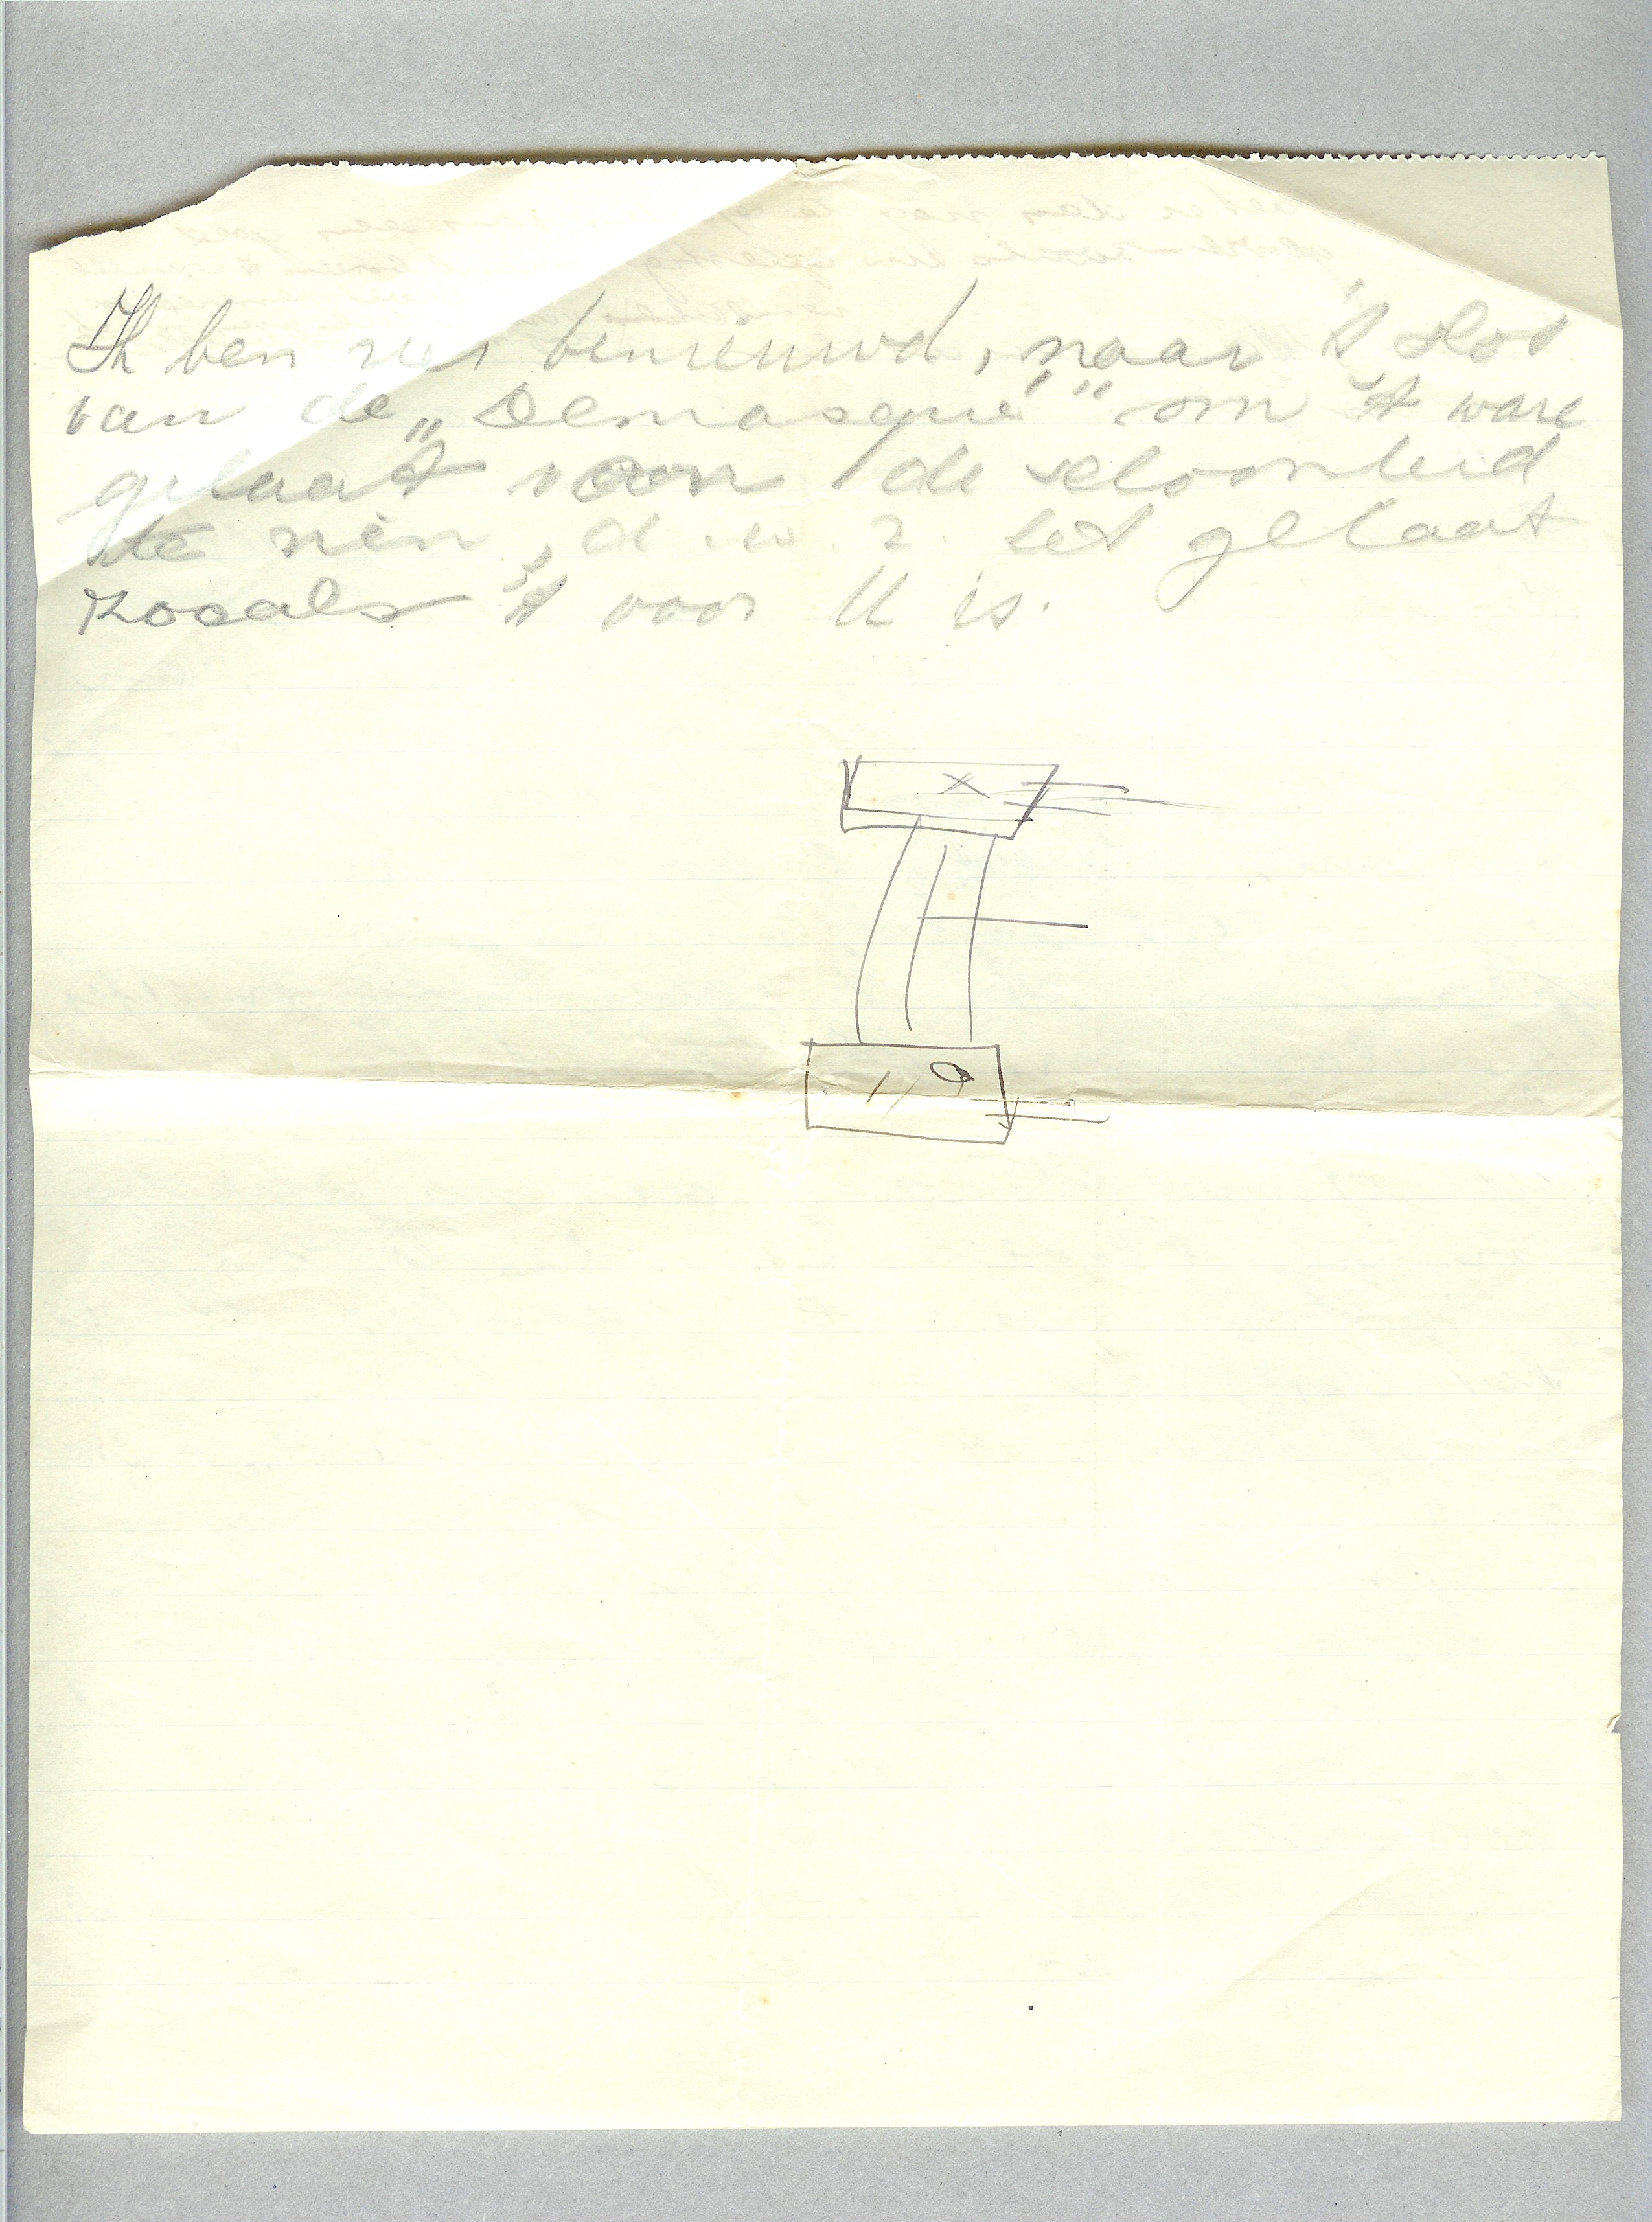 Ik ben zeer benieuwd, naar 't slot
van de „Demasqué" om 't ware
gelaat van de schoonheid
te zien, d.w.z. het gelaat
zooals 't voor U is.